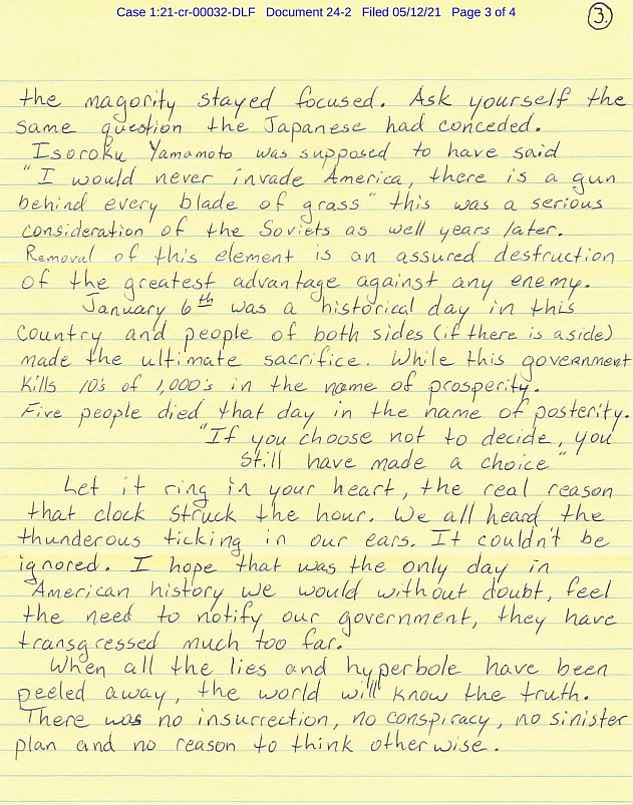 Case 1:21-cr-00032-DLF Document 24-2 Filed 05/12/21 Page 3 of 4
3.
the magority stayed focused. Ask yourself the
same question the Japanese had conceded.
Isoroku Yamamoto was supposed to have said
"I would never invade America, there is a gun
behind every blade of grass" this was a serious
consideration of the Soviets as well years later.
Removal of this element is an assured destruction
of the greatest advantage against any enemy.
January 6th was a historical day in this
country and people of both sides (if there is a side)
made the ultimate sacrifice. While this government
kills 10's of 1,000's in the name of prosperity.
Five people died that day in the name of posterity.
"If you choose not to decide, you
still have made a choice"
Let it ring in your heart, the real reason
that clock struck the hour. We all heard the
thunderous ticking in our ears. It couldn't be
ignored. I hope that was the only day in
American history we would without doubt, feel
the need to notify our government, they have
transgressed much too far.
When all the lies and hyperbole have been
peeled away, the world will know the truth.
There was no insurrection, no conspiracy, no sinister
plan and no reason to think otherwise.